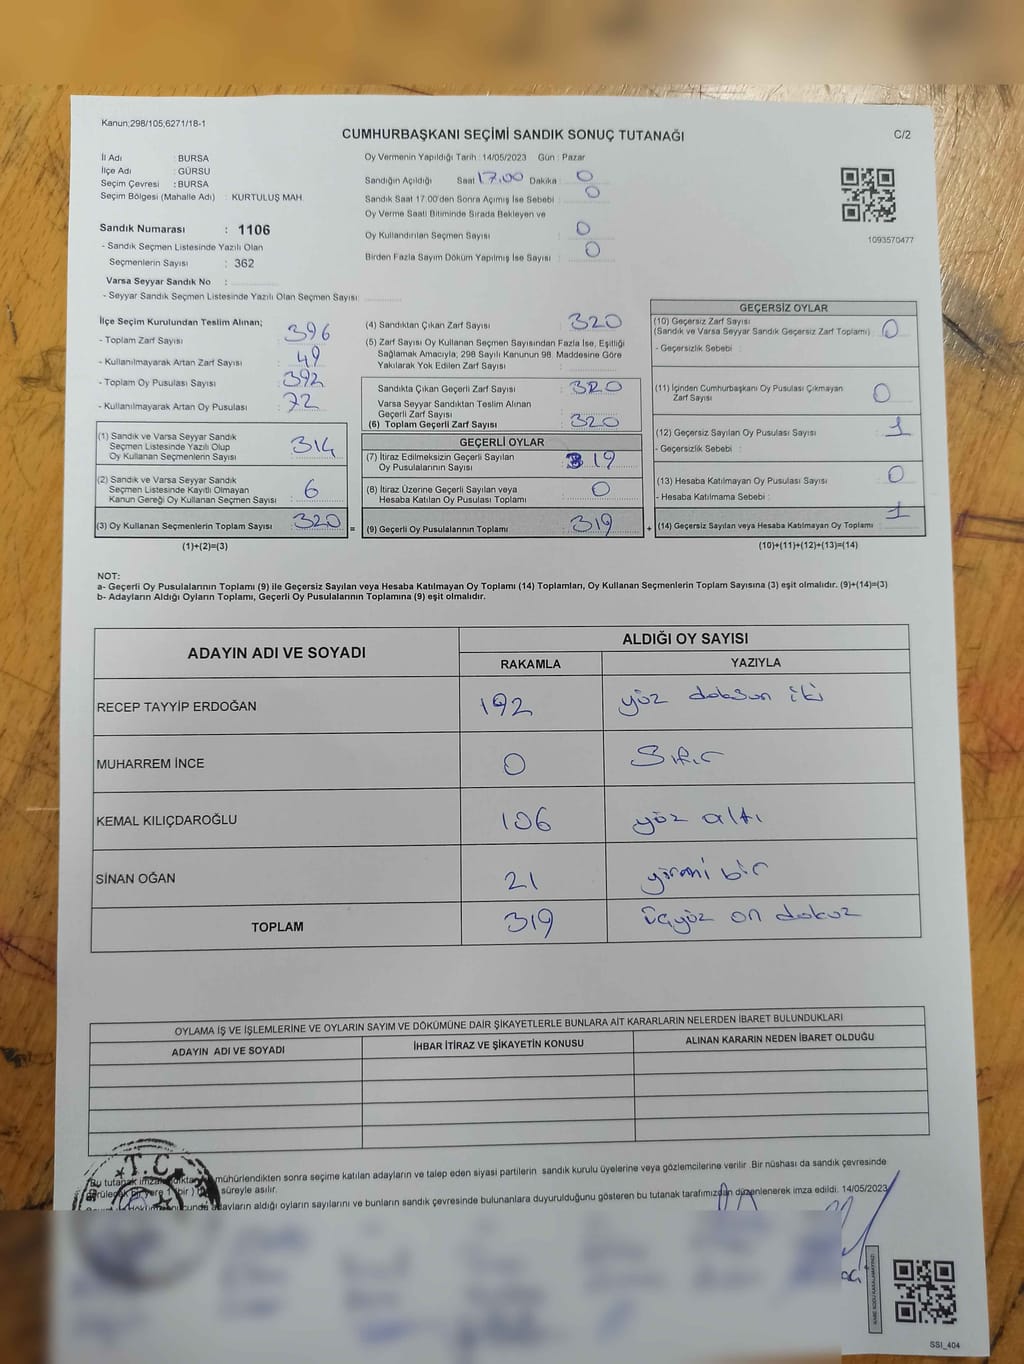 Kanun;298/105,6271/18-1
CUMHURBAŞKANI SEÇİMİ SANDIK SONUÇ TUTANAĞI
C/2
İl Adı : BURSA
İlçe Adı : GÜRSU
Seçim Çevresi : BURSA
Seçim Bölgesi (Mahalle Adı) : KURTULUŞ MAH.
Sandık Numarası : 1106
- Sandık Seçmen Listesinde Yazılı Olan
Seçmenlerin Sayısı : 362
Varsa Seyyar Sandık No :
- Seyyar Sandık Seçmen Listesinde Yazılı Olan Seçmen Sayısı:
Oy Vermenin Yapıldığı Tarih : 14/05/2023 Gün : Pazar
Sandığın Açıldığı Saat 17.00 Dakika : 0
Sandık Saat 17:00'den Sonra Açımış İse Sebebi : 0
Oy Verme Saati Bitiminde Sırada Bekleyen ve
Oy Kullandırılan Seçmen Sayısı : 0
Birden Fazla Sayım Döküm Yapılmış İse Sayısı : 0
1093570477
İlçe Seçim Kurulundan Teslim Alınan;
- Toplam Zarf Sayısı : 396
- Kullanılmayarak Artan Zarf Sayısı : 49
- Toplam Oy Pusulası Sayısı : 392
- Kullanılmayarak Artan Oy Pusulası : 72
(1) Sandık ve Varsa Seyyar Sandık
Seçmen Listesinde Yazılı Olup
Oy Kullanan Seçmenlerin Sayısı : 314
(2) Sandık ve Varsa Seyyar Sandık
Seçmen Listesinde Kayıtlı Olmayan
Kanun Gereği Oy Kullanan Seçmen Sayısı : 6
(3) Oy Kullanan Seçmenlerin Toplam Sayısı : 320
(1)+(2)=(3)
(4) Sandıktan Çıkan Zarf Sayısı : 320
(5) Zarf Sayısı Oy Kullanan Seçmen Sayısından Fazla İse, Eşitliği
Sağlamak Amacıyla; 298 Sayılı Kanunun 98. Maddesine Göre
Yakılarak Yok Edilen Zarf Sayısı :
Sandıkta Çıkan Geçerli Zarf Sayısı : 320
Varsa Seyyar Sandıktan Teslim Alınan
Geçerli Zarf Sayısı :
(6) Toplam Geçerli Zarf Sayısı : 320
GEÇERLİ OYLAR
(7) İtiraz Edilmeksizin Geçerli Sayılan
Oy Pusulalarının Sayısı : 319
(8) İtiraz Üzerine Geçerli Sayılan veya
Hesaba Katılan Oy Pusulası Toplamı : 0
= (9) Geçerli Oy Pusulalarının Toplamı : 319 +
GEÇERSİZ OYLAR
(10) Geçersiz Zarf Sayısı
(Sandık ve Varsa Seyyar Sandık Geçersiz Zarf Toplamı) : 0
- Geçersizlik Sebebi :
(11) İçinden Cumhurbaşkanı Oy Pusulası Çıkmayan
Zarf Sayısı : 0
(12) Geçersiz Sayılan Oy Pusulası Sayısı : 1
- Geçersizlik Sebebi :
(13) Hesaba Katılmayan Oy Pusulası Sayısı : 0
- Hesaba Katılmama Sebebi :
(14) Geçersiz Sayılan veya Hesaba Katılmayan Oy Toplamı : 1
(10)+(11)+(12)+(13)=(14)
NOT:
a- Geçerli Oy Pusulalarının Toplamı (9) ile Geçersiz Sayılan veya Hesaba Katılmayan Oy Toplamı (14) Toplamları, Oy Kullanan Seçmenlerin Toplam Sayısına (3) eşit olmalıdır. (9)+(14)=(3)
b- Adayların Aldığı Oyların Toplamı, Geçerli Oy Pusulalarının Toplamına (9) eşit olmalıdır.
ADAYIN ADI VE SOYADI ALDIĞI OY SAYISI
RAKAMLA YAZIYLA
RECEP TAYYİP ERDOĞAN 192 yüz doksan iki
MUHARREM İNCE 0 Sıfır
KEMAL KILIÇDAROĞLU 106 yüz altı
SİNAN OĞAN 21 yirmi bir
TOPLAM 319 üçyüz on dokuz
OYLAMA İŞ VE İŞLEMLERİNE VE OYLARIN SAYIM VE DÖKÜMÜNE DAİR ŞİKAYETLERLE BUNLARA AİT KARARLARIN NELERDEN İBARET BULUNDUKLARI
ADAYIN ADI VE SOYADI İHBAR İTİRAZ VE ŞİKAYETİN KONUSU ALINAN KARARIN NEDEN İBARET OLDUĞU
T.C.
Bu tutanak mühürlendikten sonra seçime katılan adayların ve talep eden siyasi partilerin sandık kurulu üyelerine veya gözlemcilerine verilir .Bir nüshası da sandık çevresinde
yere 1 (bir) süreyle asılır.
adayların aldığı oyların sayılarını ve bunların sandık çevresinde bulunanlara duyurulduğunu gösteren bu tutanak tarafımızdan düzenlenerek imza edildi. 14/05/2023
SSI_404